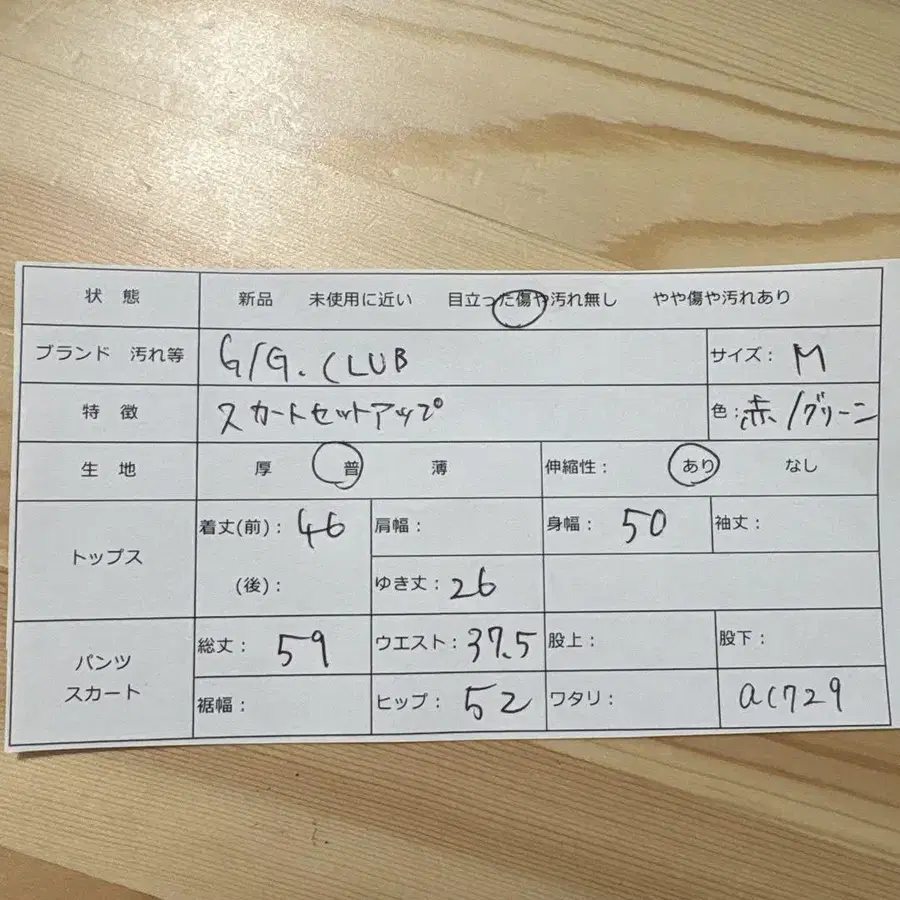 状 態 新品 未使用に近い 目立った傷や汚れ無し やや傷や汚れあり
ブランド 汚れ等 G/G.CLUB サイズ: M
特 徴 スカートセットアップ 色:赤/グリーン
生 地 厚 普 薄 伸縮性: あり なし
トップス 着丈(前): 46 肩幅: 身幅: 50 袖丈:
(後): ゆき丈: 26
パンツ スカート 総丈: 59 ウエスト: 37.5 股上: 股下:
裾幅: ヒップ: 52 ワタリ: ac729